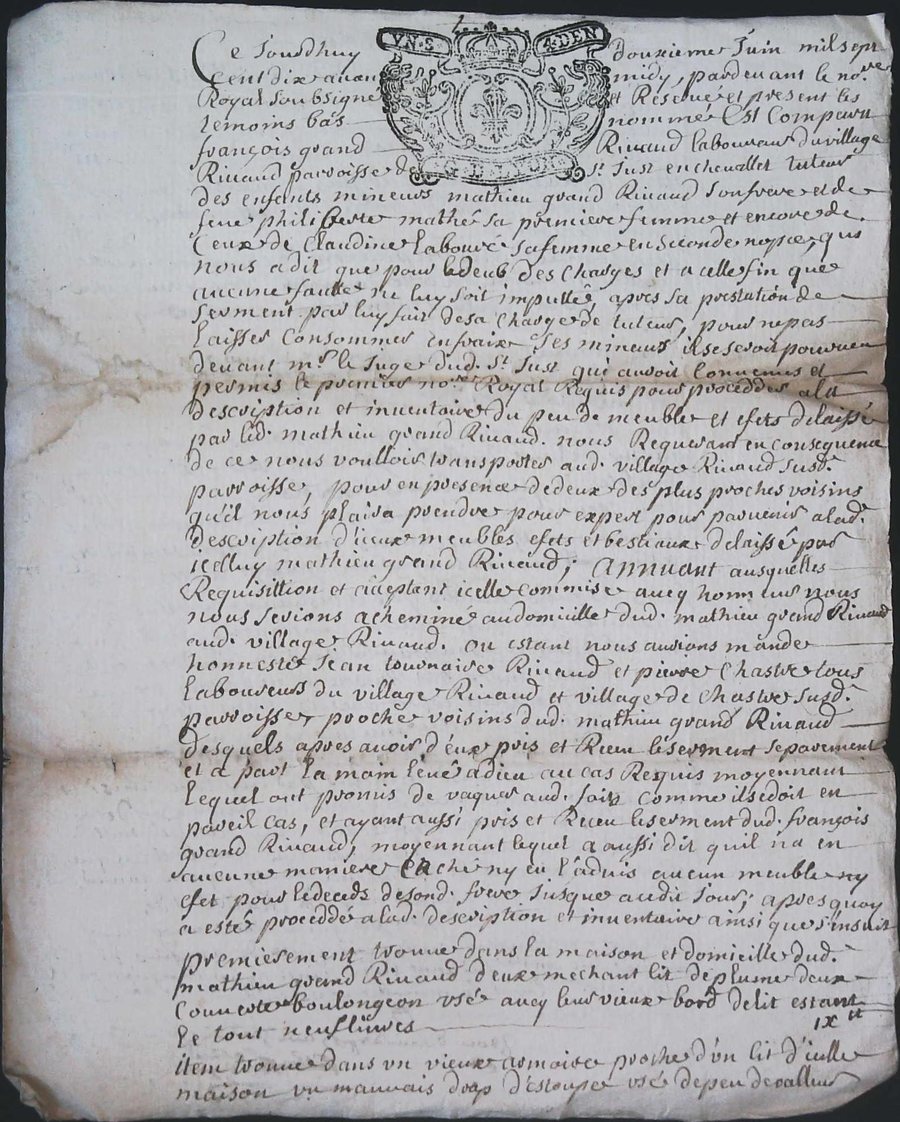 VN S ADEN
G. LYON
Ce Jourdhuy douxieme Juin mil sept
cent dix avan midy, pardevant le no.re
Royal soubsigné et Réservé et present les
temoins bas nommé Est Comparu
françois grand Rivaud laboureur du village
Rivaud parroisse de st. Just en chevallet tuteur
des enfants mineurs mathieu grand Rivaud son frere et de
feue philiberte mathé sa premiere femme et encore de
Ceux de Claudine labouré sa femme en seconde nopce, qui
nous a dit que pour le deub des Charges et a celle fin que
aucune faulte ne luy soit imputtée, apres sa prestation de
serment par luy fait de sa Charge de tuteur, pour ne pas
laisser Consommer en fraix ses mineurs il se seroit pourveu
devant mr. le Juge dud. st. Just qui auroit Convenus et
permis le premier no.re Royal Requis pour proceddes a la
description et inventaire du peu de meuble et efets delaissé
par led. mathieu grand Rivaud. nous Requerant en consequence
de ce nous voulloir transportes aud. village Rivaud susd.e
parroisse, pour en presence de deux des plus proches voisins
qu'il nous plaira prendre pour expert pour parvenir a lad.e
description d'iceux meubles efets et bestiaux delaissé par
icelluy mathieu grand Rivaud; annuant ausquelles
Requisittion et aceptant icelle commise avecq honneur nous
nous serions acheminé au domicille dud. mathieu grand Rivaud
aud. village Rivaud. ou estant nous aurions mandé
honneste Jean tournaire Rivaud et pierre Chastre tous
laboureurs du village Rivaud et village de Chastre susd.e
parroisse proche voisins dud. mathieu grand Rivaud
desquels apres avoir d'eux pris et Receu le serment separement
et a part la main levé a dieu au cas Requis moyennant
lequel ont promis de vaquer aud. fait comme il se doit en
pareil cas, et ayant aussi pris et Receu le serment dud. françois
grand Rivaud, moyennant lequel a aussi dit qu'il n'a en
aucune maniere caché ny eu l'advis aucun meuble ny
efet pour le deceds de sond. frere jusque audit jour; apres quoy
a esté proceddé a lad. description et inventaire ainsi que s'insuit
premierement trouve dans la maison et domicille dud.e
mathieu grand Rivaud deux mechant lit de plume deux
Couverte boulongeon usé avecq leur vieux bord de lit estant
le tout neuf livres ix lt
item trouve dans un vieux armoire proche d'un lit d'icelle
maison un mauvais drap d'estoupe usé de peu de valleur